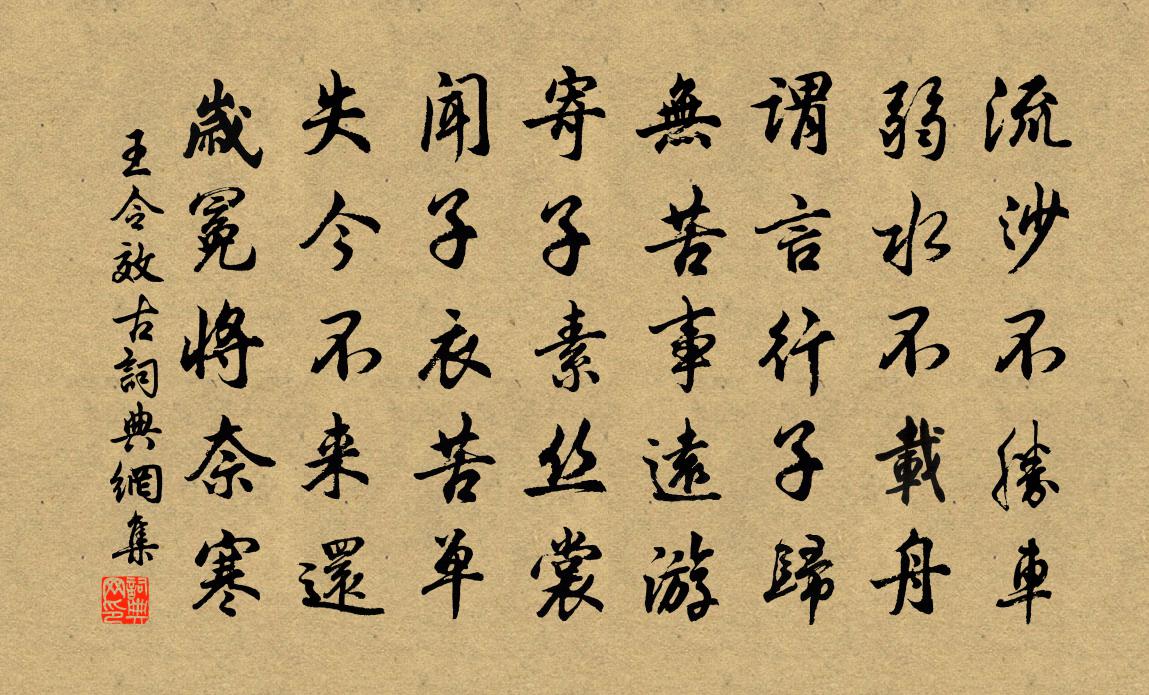 流沙不勝車
弱水不載舟
謂言行子歸
無苦事遠游
寄子素丝裳
聞子衣苦单
失今不来還
歳冕將奈寒
王令效古詞典網集
詞典网印